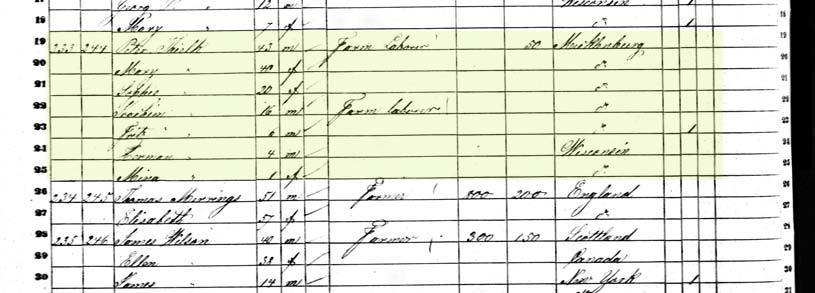 Georg " 12 m Wisconsin 1
18 Mary " 7 f " 1
19 233 244 43 m Farm Laborer 50 Mecklenburg
20 Mary " 40 f "
21 Sophie " 20 f "
22 " 16 m Farm laborer "
23 " 6 m " 1
24 Herman " 4 m Wisconsin
25 Mina " 1 f "
26 234 245 Thomas 51 m Farmer 800 200 England
27 Elisabeth 57 f "
28 235 246 James Wilson 40 m Farmer 300 150 Scottland
29 Ellen " 38 f Canada
30 James " 14 m New York 1